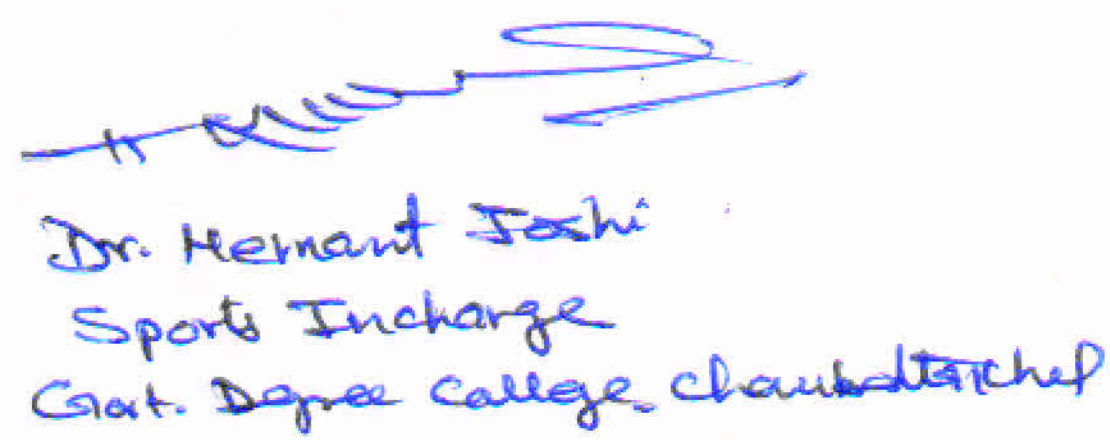 Dr. Hemant Joshi
Sports Incharge
Govt. Degree College, Chaubattakhal